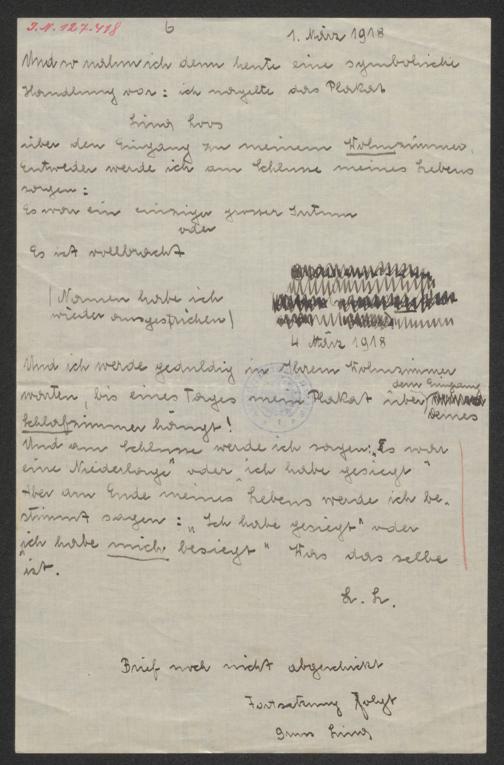 I.N. 127.418
6
1. März 1918
Und so nahm ich denn heute eine symbolische
Handlung vor: ich nagelte das Plakat
Lina Loos
über den Eingang zu meinem Wohnzimmer.
Entweder werde ich am Schlusse meines Lebens
sagen:
Es war ein einziger grosser Irrtum
oder
Es ist vollbracht
(Namen habe ich
wieder ausgestrichen)
4 März 1918
Und ich werde geduldig in Ihrem Wohnzimmer
warten, bis eines Tages mein Plakat über dem Eingang
Deines
Schlafzimmer hängt!
Und am Schlusse werde ich sagen: „Es war
eine Niederlage" oder "ich habe gesiegt"
Aber am Ende meines Lebens werde ich be-
stimmt sagen: „Ich habe gesiegt" oder
"ich habe mich besiegt" Was das selbe
ist.
L. L.
Brief noch nicht abgeschickt
Fortsetzung folgt
Lina